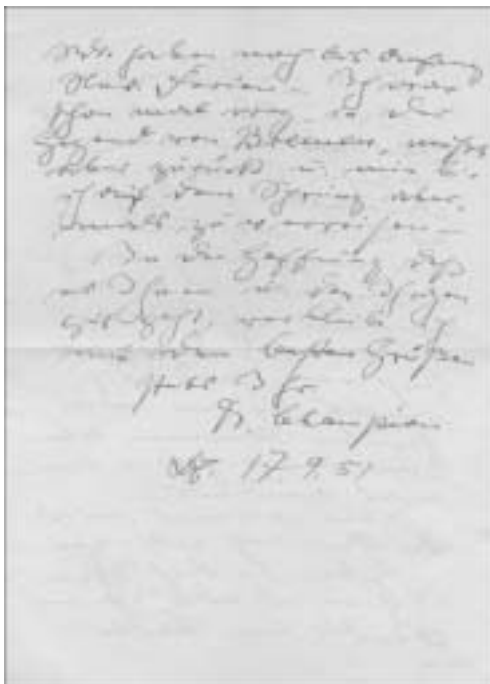 Wir haben noch bis Anfang
Ferien. Ich war
schon mal in der
Gegend von Bremen,
aber zurück u.
ich auf dem Sprung aber-
mals zu verreisen.
In der Hoffnung, daß
es Ihnen u. den Ihrigen
gut geht, verbleibe ich
mit den besten Grüßen
stets Ihr
17.9.51